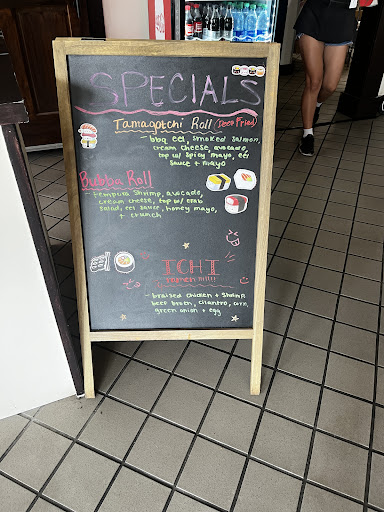 SPECIALS
Tamagotchi Roll (Deep Fried)
bbq eel, smoked salmon,
cream cheese, avocado,
top w/ spicy mayo, eel
sauce + mayo
Bubba Roll
tempura shrimp, avocado,
cream cheese, top w/ crab
salad, eel sauce, honey mayo,
+ crunch
ICHI
ramen
braised chicken + shrimp
beef broth, cilantro, corn,
green onion + egg